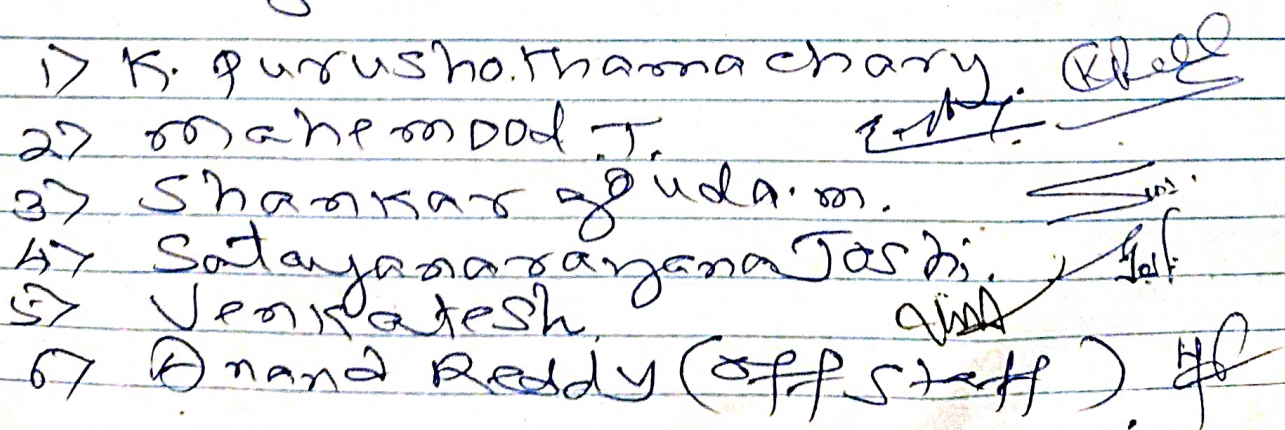 1> K. Purushothamachary.
2> Mahemood .J.
3> Shankar gouda.m.
4> Satayanarayana Joshi.
5> Venkatesh.
6> Anand Reddy (off staff).